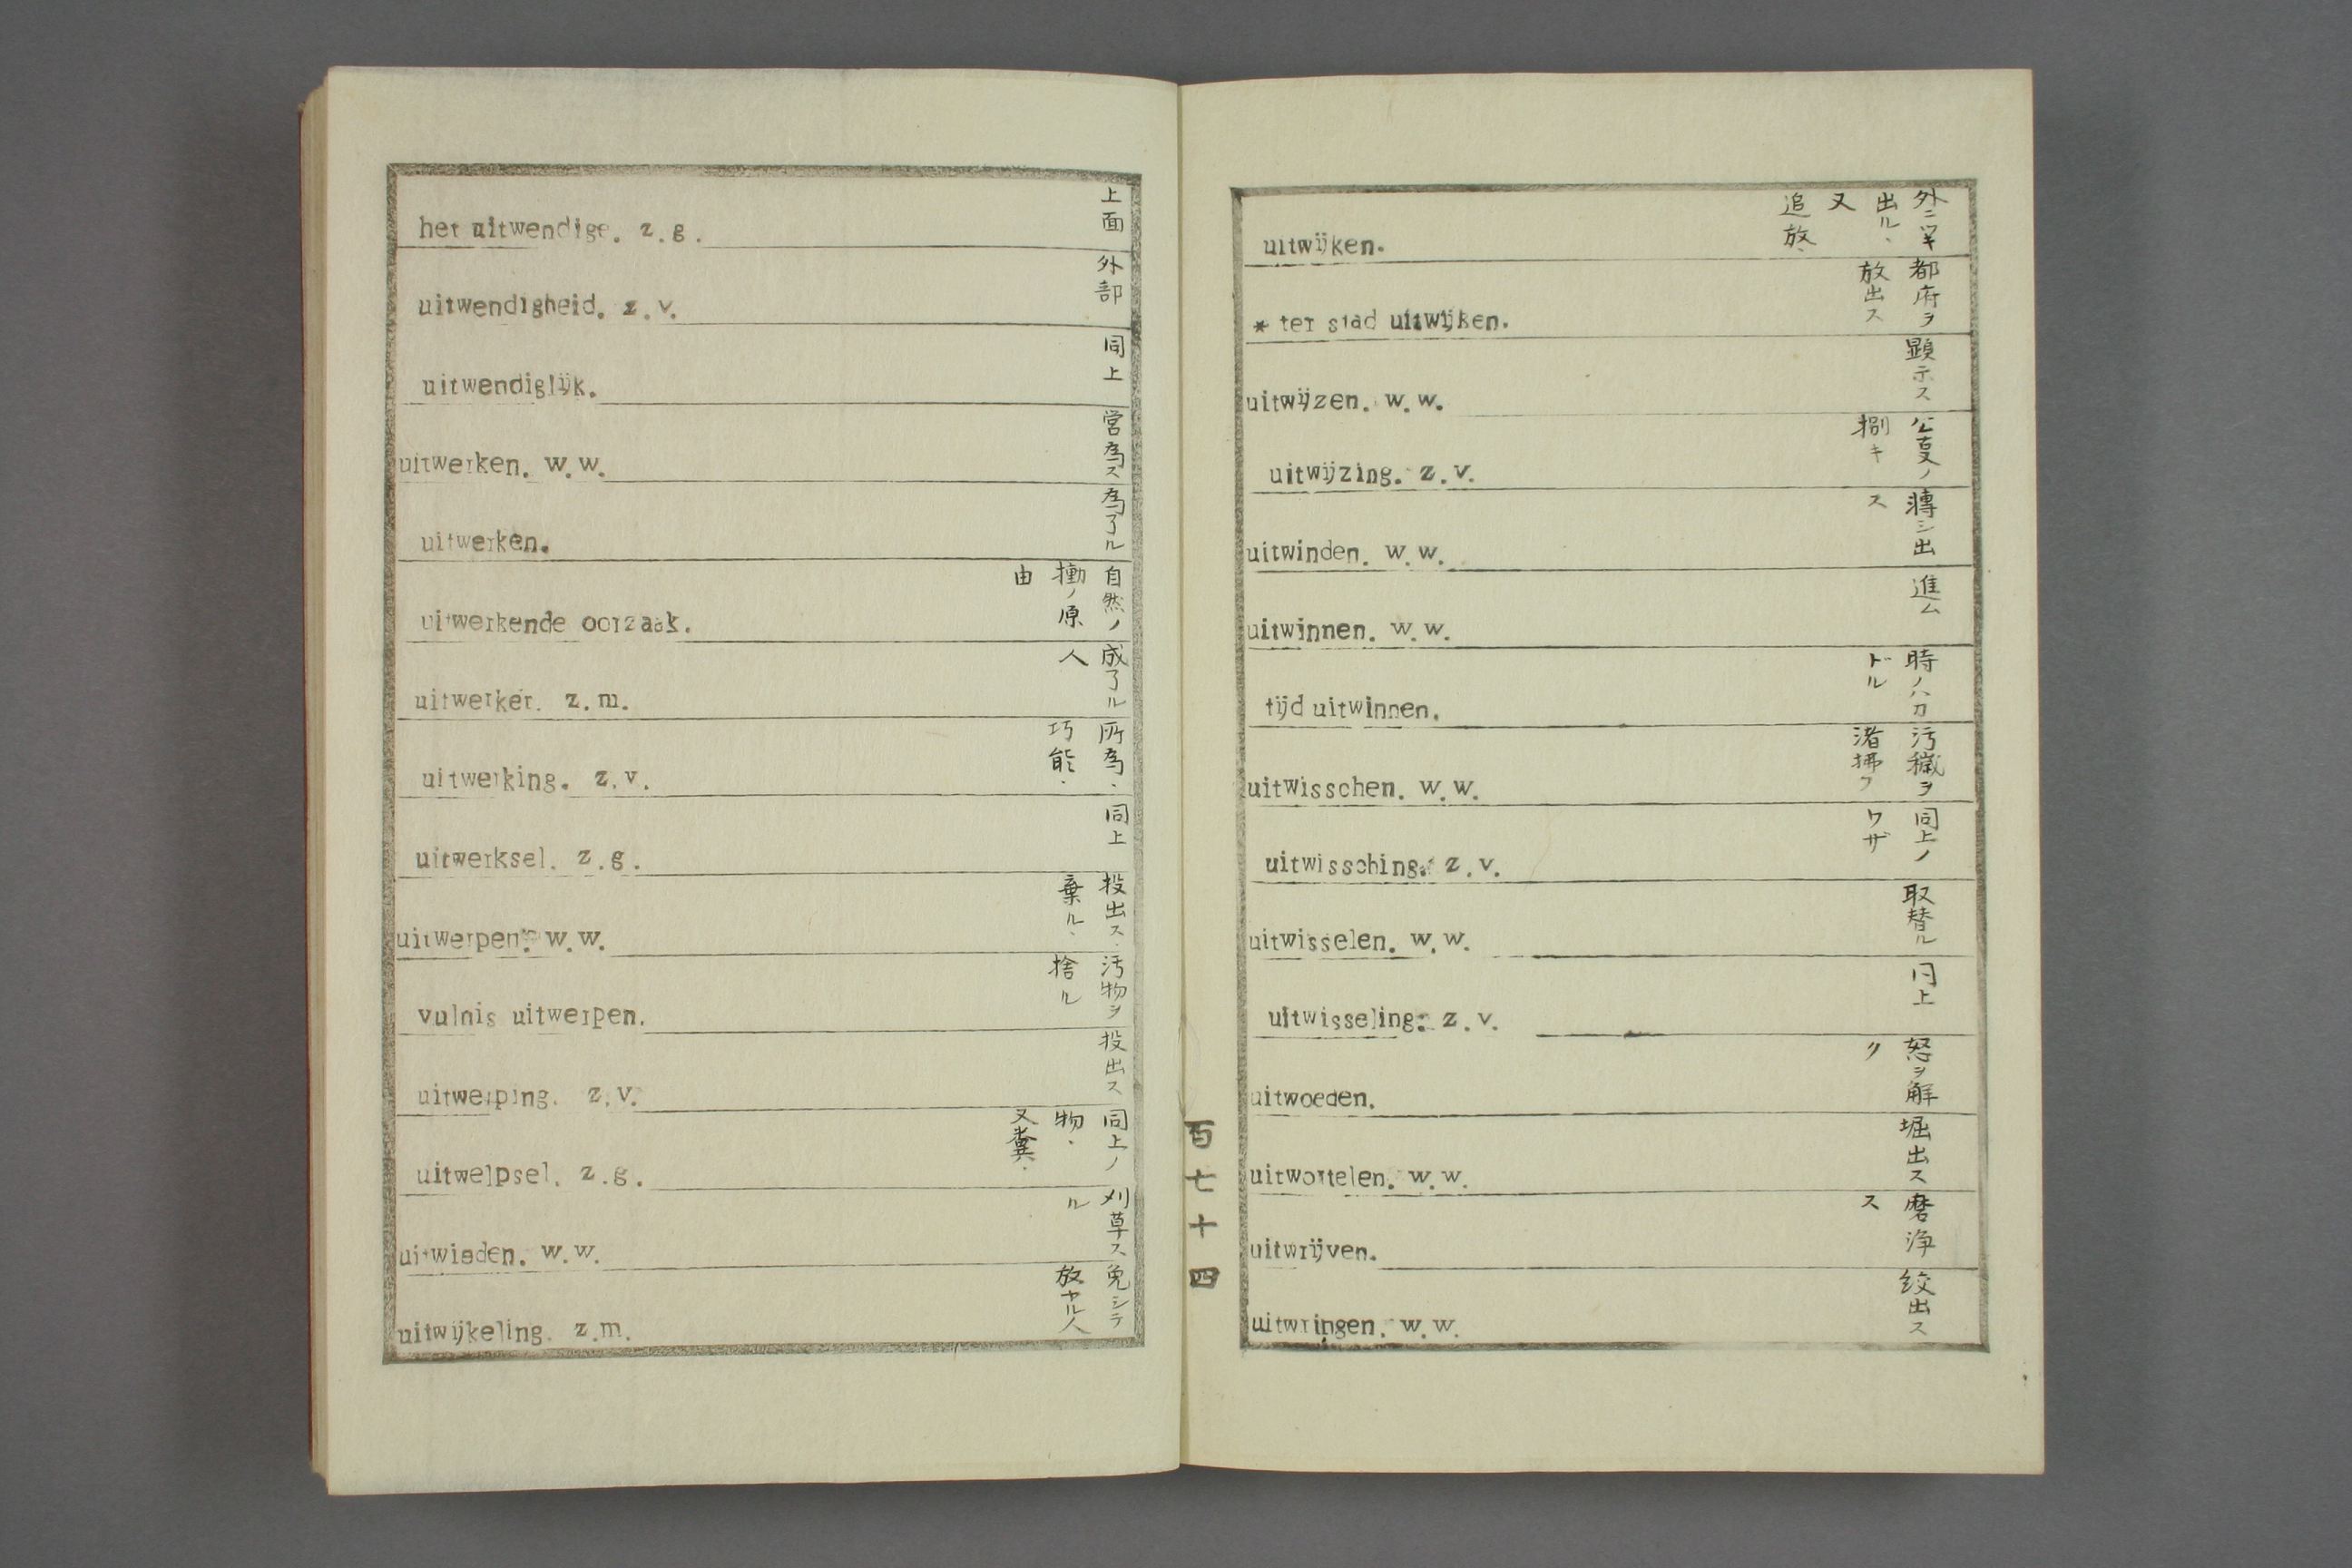 het uitwendige. z.g.
上面
uitwendigheid. z.v.
外部
uitwendiglijk.
同上
uitwerken. w.w.
営為ス
uitwerken.
為了ル
uitwerkende oorzaak.
自然ノ
働ノ原
由
uitwerker. z.m.
成了ル
人
uitwerking. z.v.
所為.
巧能.
uitwerksel. z.g.
同上
uitwerpen. w.w.
投出ス.
棄ル、
vulnis uitwerpen.
汚物ヲ
捨ル
uitwerping. z.v.
投出ス
uitwelpsel. z.g.
同上ノ
物.
又糞.
uitwieden. w.w.
刈草ス
ル
uitwijkeling. z.m.
免シテ
放ヤル人
百七十四
uitwijken.
出ル、
又
追放、
* ter stad uitwijken.
都府ヲ
放出ス
uitwijzen. w.w.
顕示ス
uitwijzing. z.v.
公叓ノ
捌キ
uitwinden. w.w.
シ出
ス
uitwinnen. w.w.
進ム
tijd uitwinnen.
時ノハカ
ドル
uitwisschen. w.w.
汚穢ヲ
渚拂フ
uitwissching. z.v.
同上ノ
ワザ
uitwisselen. w.w.
取替ル
uitwisseling. z.v.
同上
uitwoeden.
怒ヲ解
ク
uitwortelen. w.w.
堀出ス
uitwrijven.
磨浄
ス
uitwringen. w.w.
絞出ス